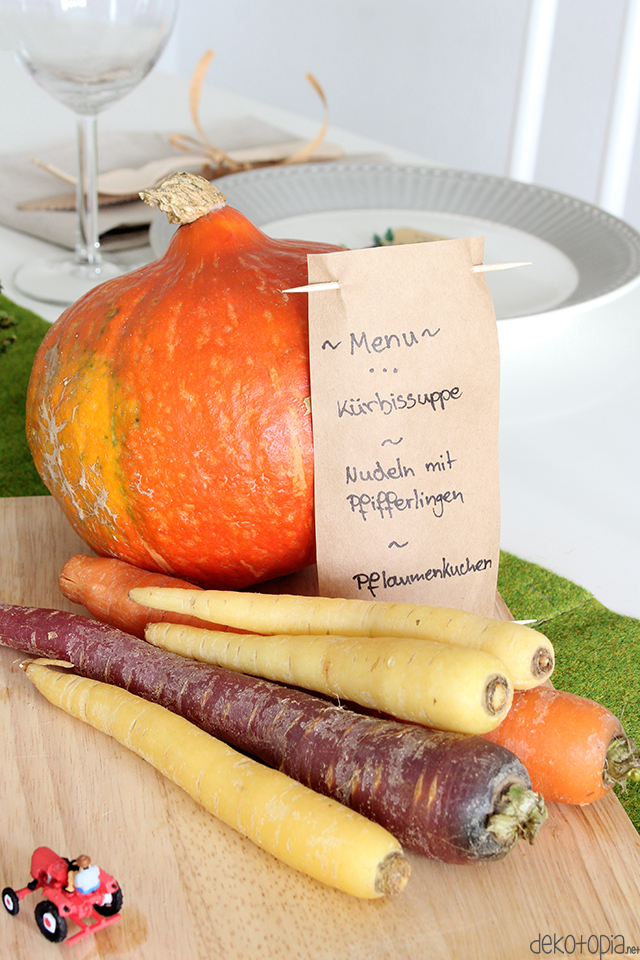 ~ Menu ~
...
Kürbissuppe
~
Nudeln mit
Pfifferlingen
~
Pflaumenkuchen
dekotopia.net